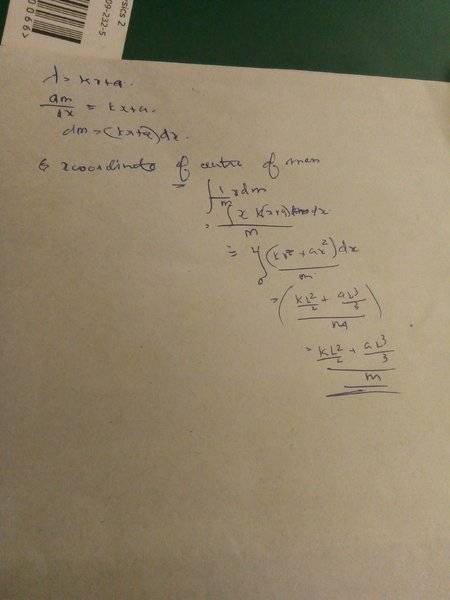 sics 2
09-232-5
0066>
λ = kx+a.
dm/dx = kx+a.
dm = (kx+a) dx.
xcoordinate of centre of mass
∫ 1/m x dm
= ∫ x (kx+a) dx / m
= ∫ (kx² + ax²) dx / m
= ( kL²/2 + aL³/3 ) / m
= kL²/2 + aL³/3 / m